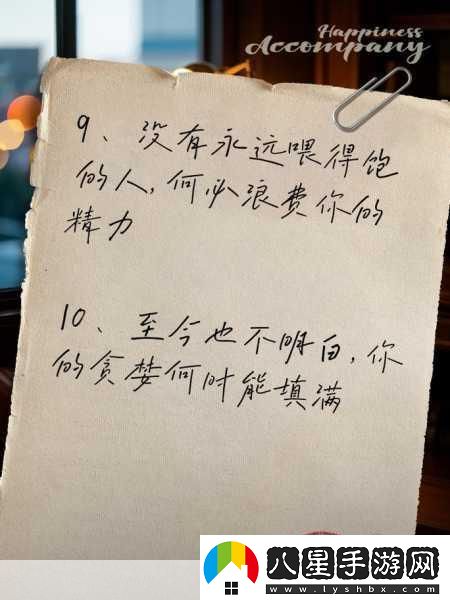 Happiness
Accompany
9、没有永远喂得饱
的人,何必浪费你的
精力
10、至今也不明白,你
的贪婪何时能填满
八星手游网
www.lyshbx.com